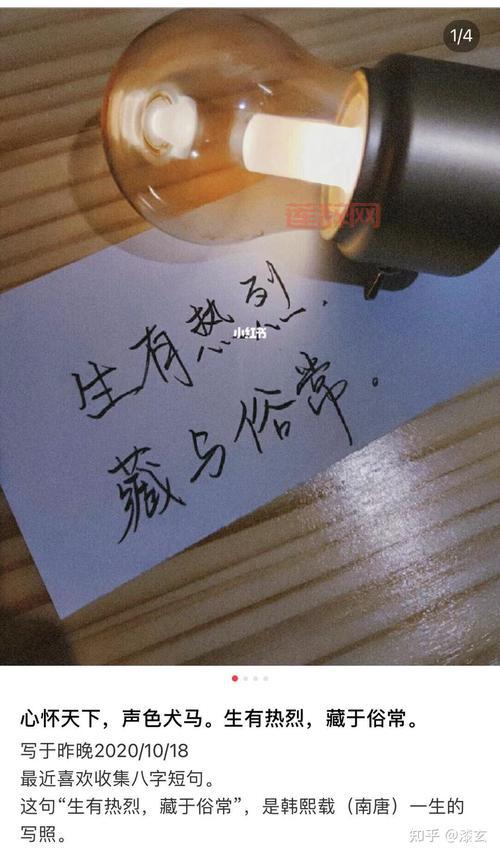 1/4
莲花网
生有热烈，
小红书
藏与俗常。
心怀天下，声色犬马。生有热烈，藏于俗常。
写于昨晚2020/10/18
最近喜欢收集八字短句。
这句“生有热烈，藏于俗常”，是韩熙载（南唐）一生的
写照。
知乎 @漆玄